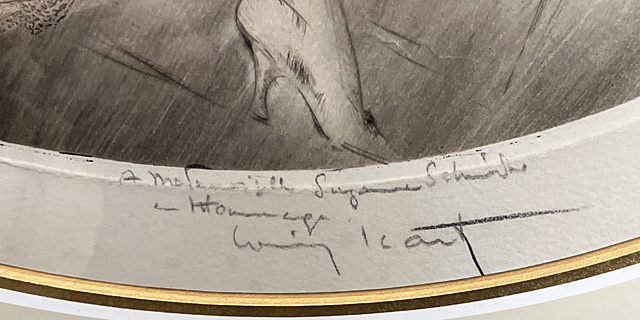 A Mademoiselle Suzanne
en Hommage
Louis Icart